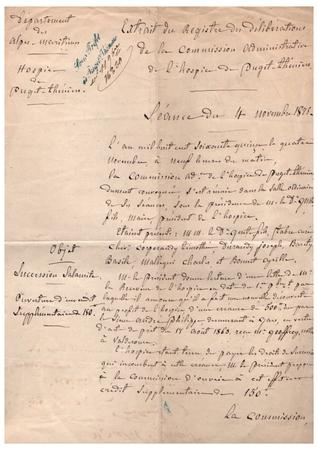 Département
des
Alpes Maritimes
Hospice
de
Puget-Théniers
Extrait du Registre des délibérations
de la Commission Administrative
de l'hospice de Puget-Théniers
Séance du 4 novembre 1875.
L'an mil huit cent soixante quinze le quatre
Novembre à neuf heures du matin,
la Commission ad.ve de l'hospice de Puget-Théniers
dument convoquée s'est réunie dans la salle ordinaire
de ses séances, sous la présidence de M. le Dr
fils, Maire président de l'hospice.
Etaient présents : MM. le Dr fils,
Durandy Joseph, Barety
Basile, Charles et Bonnet
Objet
Succession
Ouverture d'un crédit
Supplémentaire de 150.
M. le président donne lecture d'une lettre de M.
le Receveur de l'hospice en date du
laquelle il annonce qu'il a fait une nouvelle découverte
au profit de l'hospice d'une créance de 500f
Sieur André Philippe demeurant à en
d'act de prêt du 18 août 1863, reçu Me Geoffroy, notaire
à Valderoure.
L'hospice étant tenu de payer les droits de succession
qui incombent à cette créance, M. le président propose
à la Commission d'ouvrir à cet effet un
crédit supplémentaire de 150f.
La Commission,